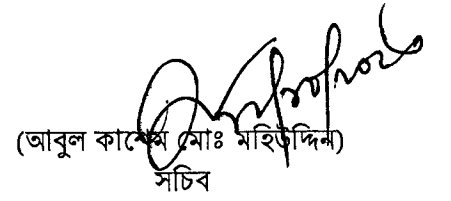 (আবুল কাশেম মোঃ মহিউদ্দিন)
সচিব